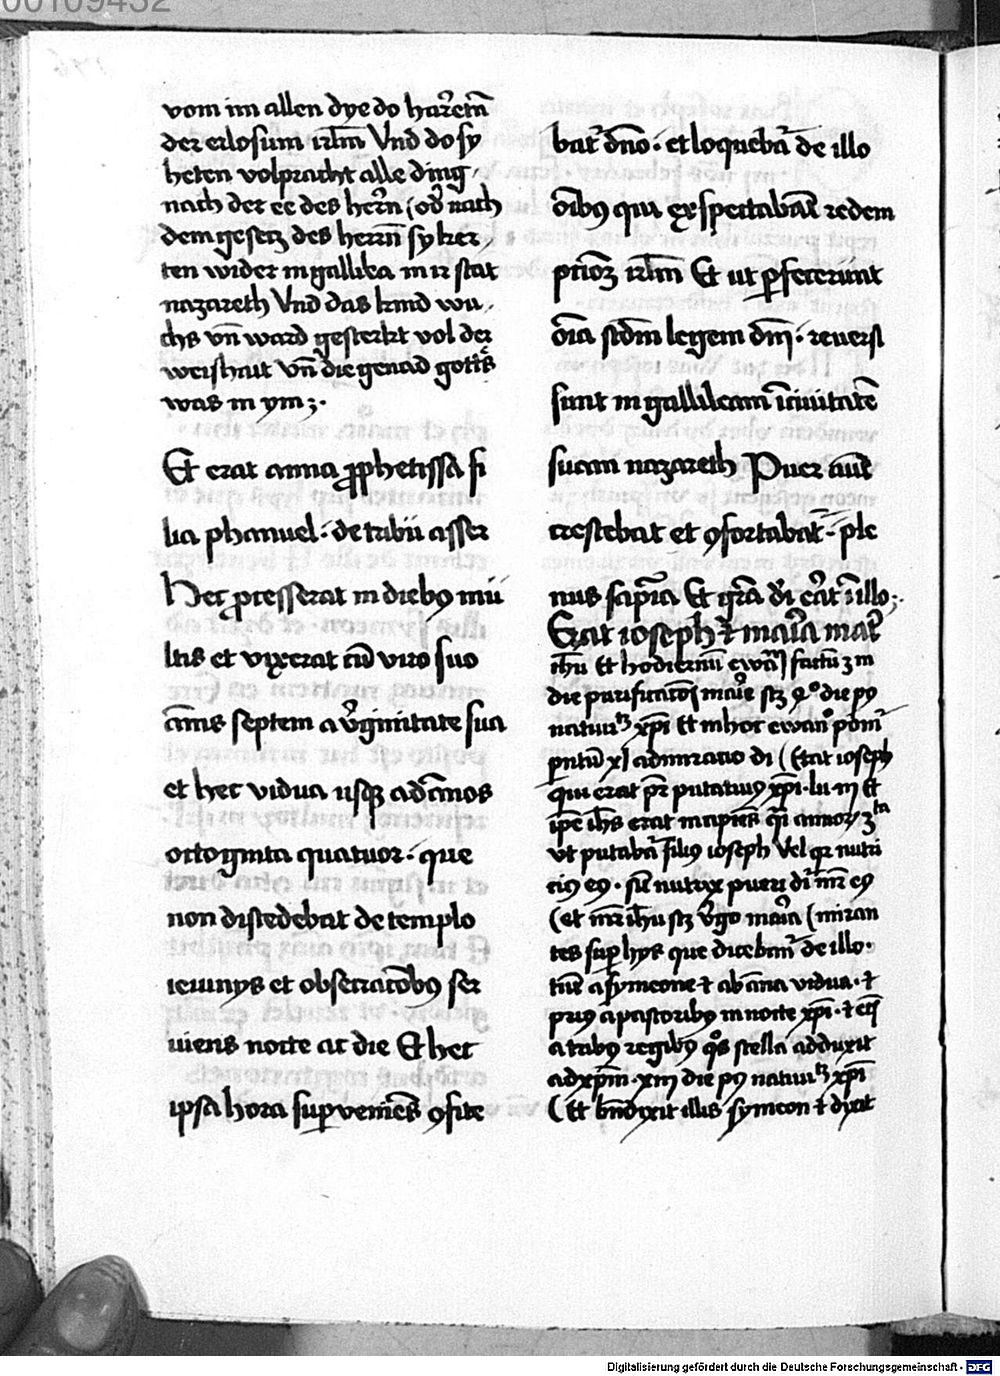 00109432
vom im allen dye do harrētn̄
der erlosum irlm̄ Vnd do sy
heten volpracht alle ding
nach der ee des herr̄n (od̕ nach
dem gesetz des herrn̄ sy ker
ten wider in gallilea in ir stat
nazareth Vnd das kind wu
chs vn̄ ward gesterkt vol der
weishait Vn̄ die genad gotts̄
was in ym :·
Et erat anna ꝓphetissa fi
lia phanuel · de tribu asser
Hec ꝓcesserat in diebꝯ mu
ltis et vixerat cū viro suo
ān̄is septem a v̕ginitate sua
et hec vidua usqꝫ ad ān̄os
octoginta quatuor · que
non discedebat de templo
ieiunys et obsecrac̄obꝯ ser
uiens nocte ac die Et hec
ipsa hora suꝑvenien̄s ꝯfite
bat̕ dn̄o · et loquebat̕ de illo
ōībꝯ qui exspectaban̄t redem
ptioꝫ irlm̄ Et ut ꝑfecerunt
ōīa scd̄m legem dn̄j · reuersi
sunt in gallileam ī ciuitatē
suam nazareth Puer aūt̄
crescebat et ꝯfortabat̕ · ple
nus sapīa Et grā dī erat ī illo ·
Erat ioseph ⁊ maria mat̕
ih̄u Et hodiernū ewā̄ factū ꝫ in
die purificac̄ois marie scꝫ 40 die pꝯ
natiui tꝫ xp̄i Et in hoc ewan° ponit̕
ꝑ
qui erat pr̄ putatiuꝯ xp̄i · lu iij Et
ip̄e ih̄s erat incipiēs q̄i annorꝫ 3ta
vt putabat̕ filiꝯ ioseph Vel qꝛ nutri
ciꝯ eꝯ · sicut nutrix pueri dī mr̄ eꝯ
(et mr̄ ih̄u scꝫ v̕go maria (miran
tes suꝑ hys que dicebant̕ de illo ·
tum a symeone ⁊ ab āna vidua · ⁊
priꝯ a pastoribꝯ in nocte xp̄i · ⁊
a tribꝯ regibꝯ qōs stella adduxit
ad xp̄m · xiij die pꝯ natiui tꝫ xp̄i
(Et bn̄dixit illis symeon ⁊ dixit
Digitalisierung gefördert durch die Deutsche Forschungsgemeinschaft - DFG